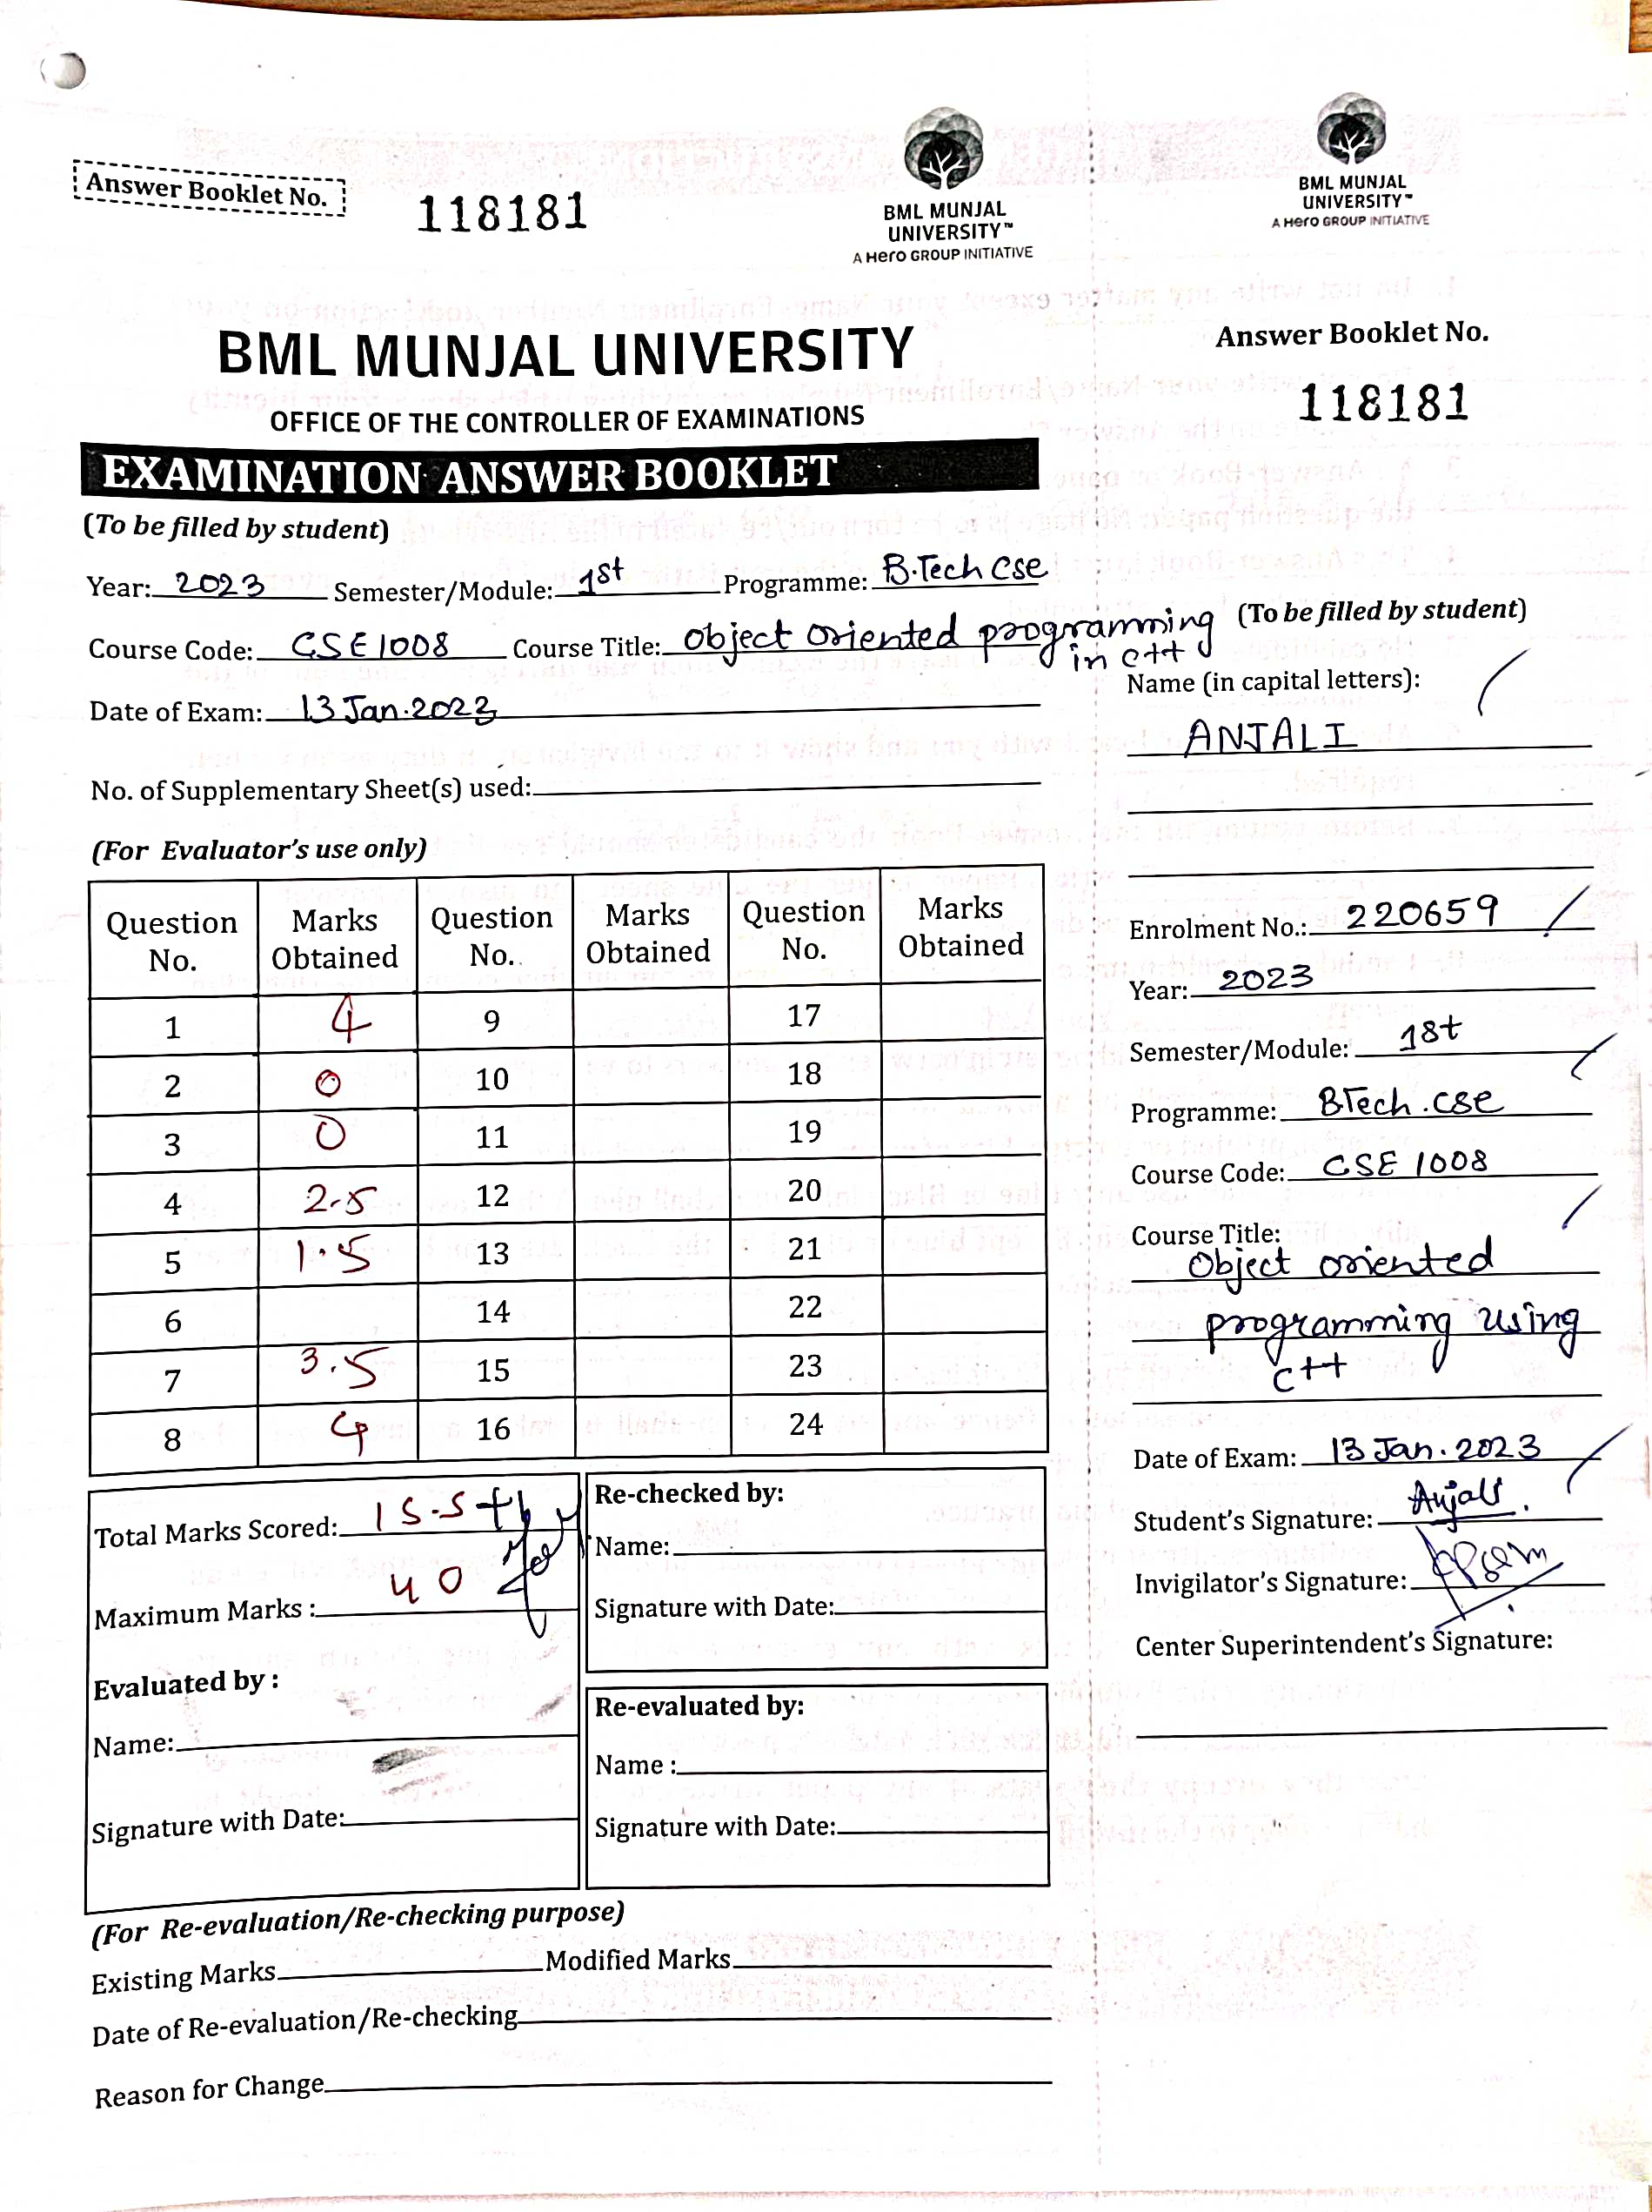 Answer Booklet No.
118181
BML MUNJAL
UNIVERSITY™
A Hero GROUP INITIATIVE
BML MUNJAL
UNIVERSITY™
A Hero GROUP INITIATIVE
BML MUNJAL UNIVERSITY
OFFICE OF THE CONTROLLER OF EXAMINATIONS
EXAMINATION ANSWER BOOKLET
(To be filled by student)
Year: 2023 Semester/Module: 1st Programme: B.Tech CSE
Course Code: CSE1008 Course Title: Object oriented programming
in C++
Date of Exam: 13 Jan.2023
No. of Supplementary Sheet(s) used:
(For Evaluator's use only)
Question No. Marks Obtained Question No. Marks Obtained Question No. Marks Obtained
1 4 9 17
2 0 10 18
3 0 11 19
4 2.5 12 20
5 1.5 13 21
6 14 22
7 3.5 15 23
8 4 16 24
Total Marks Scored: 15.5
Maximum Marks : 40
Evaluated by :
Name:
Signature with Date:
Re-checked by:
Name:
Signature with Date:
Re-evaluated by:
Name :
Signature with Date:
(For Re-evaluation/Re-checking purpose)
Existing Marks Modified Marks
Date of Re-evaluation/Re-checking
Reason for Change
Answer Booklet No.
118181
(To be filled by student)
Name (in capital letters):
ANJALI
Enrolment No.: 220659
Year: 2023
Semester/Module: 1st
Programme: BTech.CSE
Course Code: CSE 1008
Course Title:
Object oriented
programming using
C++
Date of Exam: 13 Jan. 2023
Student's Signature: Anjali.
Invigilator's Signature:
Center Superintendent's Signature: